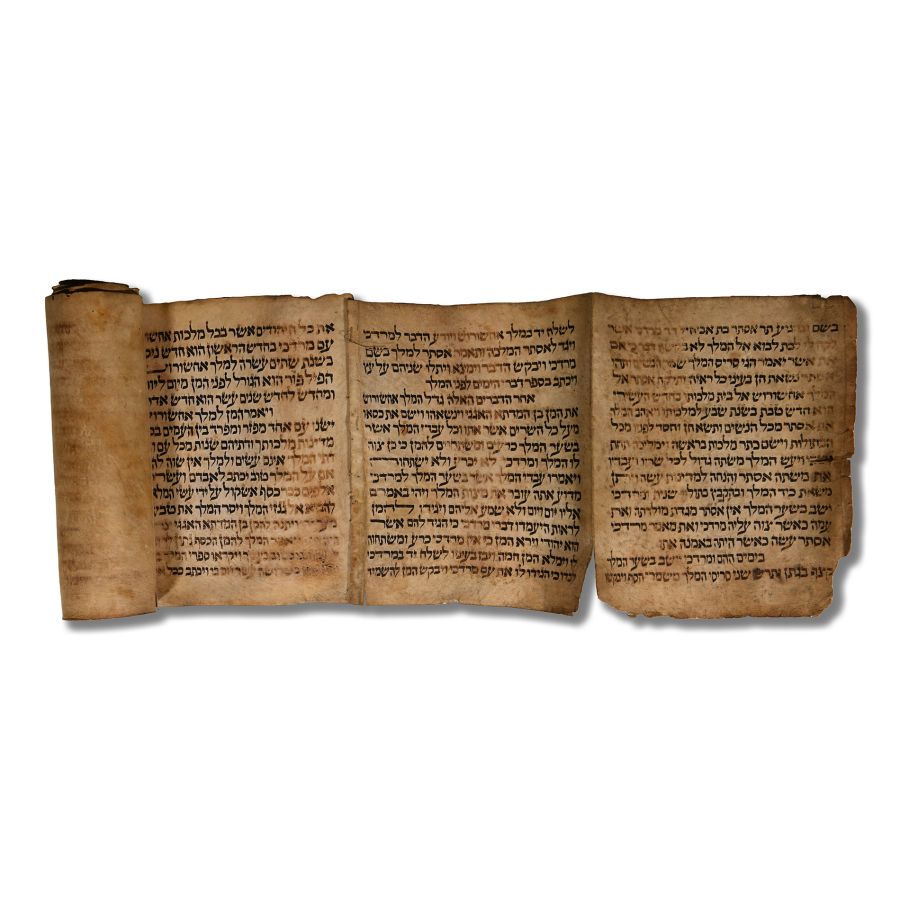 בשם ובהגיע תר אסתר בת אביחיל דד מרדכי אשר
לקח לו לבת לבוא אל המלך לא דבר כי אם
את אשר יאמר הגי סריס המלך
נשאת חן בעיני כל ראיה ותלקח אסתר אל
המלך אחשורוש אל בית מלכותו בחדש העשירי
הוא חדש טבת בשנת שבע למלכותו ויאהב המלך
את אסתר מכל הנשים ותשא חן וחסד לפניו מכל
הבתולות וישם כתר מלכות בראשה וימליכה תחת
ושתי ויעש המלך משתה גדול לכל שריו ועבדיו
את משתה אסתר והנחה למדינות עשה ויתן
משאת כיד המלך ובהקבץ בתולות שנית ומרדכי
ישב בשער המלך אין אסתר מגדת מולדתה ואת
עמה כאשר צוה עליה מרדכי ואת מאמר מרדכי
אסתר עשה כאשר היתה באמנה אתו
בימים ההם ומרדכי יושב בשער המלך
קצף בגתן ותרש שני סריסי המלך משמרי הסף ויבקשו
לשלח יד במלך אחשורוש ויודע הדבר למרדכי
ויגד לאסתר המלכה ותאמר אסתר למלך בשם
מרדכי ויבקש הדבר וימצא ויתלו שניהם על עץ
ויכתב בספר דברי הימים לפני המלך
אחר הדברים האלה גדל המלך אחשורוש
את המן בן המדתא האגגי וינשאהו וישם את כסאו
מעל כל השרים אשר אתו וכל עבדי המלך אשר
בשער המלך כרעים ומשתחוים להמן כי כן צוה
לו המלך ומרדכי לא יכרע ולא ישתחוה
ויאמרו עבדי המלך אשר בשער המלך למרדכי
מדוע אתה עובר את מצות המלך ויהי באמרם
אליו יום ויום ולא שמע אליהם ויגידו להמן
לראות היעמדו דברי מרדכי כי הגיד להם אשר
הוא יהודי וירא המן כי אין מרדכי כרע ומשתחוה
לו וימלא המן חמה ויבז בעיניו לשלח יד במרדכי
לבדו כי הגידו לו את עם מרדכי ויבקש המן להשמיד
את כל היהודים אשר בכל מלכות אחשורוש
עם מרדכי בחדש הראשון הוא חדש ניסן
בשנת שתים עשרה למלך אחשורוש
הפיל פור הוא הגורל לפני המן מיום ליום
ומחדש לחדש שנים עשר הוא חדש אדר
ויאמר המן למלך אחשורוש
ישנו עם אחד מפזר ומפרד בין העמים בכל
מדינות מלכותך ודתיהם שנות מכל עם
דתי המלך אינם עשים ולמלך אין שוה
אם על המלך טוב יכתב לאבדם ועשרת
אלפים ככר כסף אשקול על ידי עשי המלאכה
להביא אל גנזי המלך ויסר המלך את טבעתו
מעל ידו ויתנה להמן בן המדתא האגגי
ויאמר המלך להמן הכסף
ויקראו ספרי המלך
בשלושה עשר יום בו ויכתב ככל